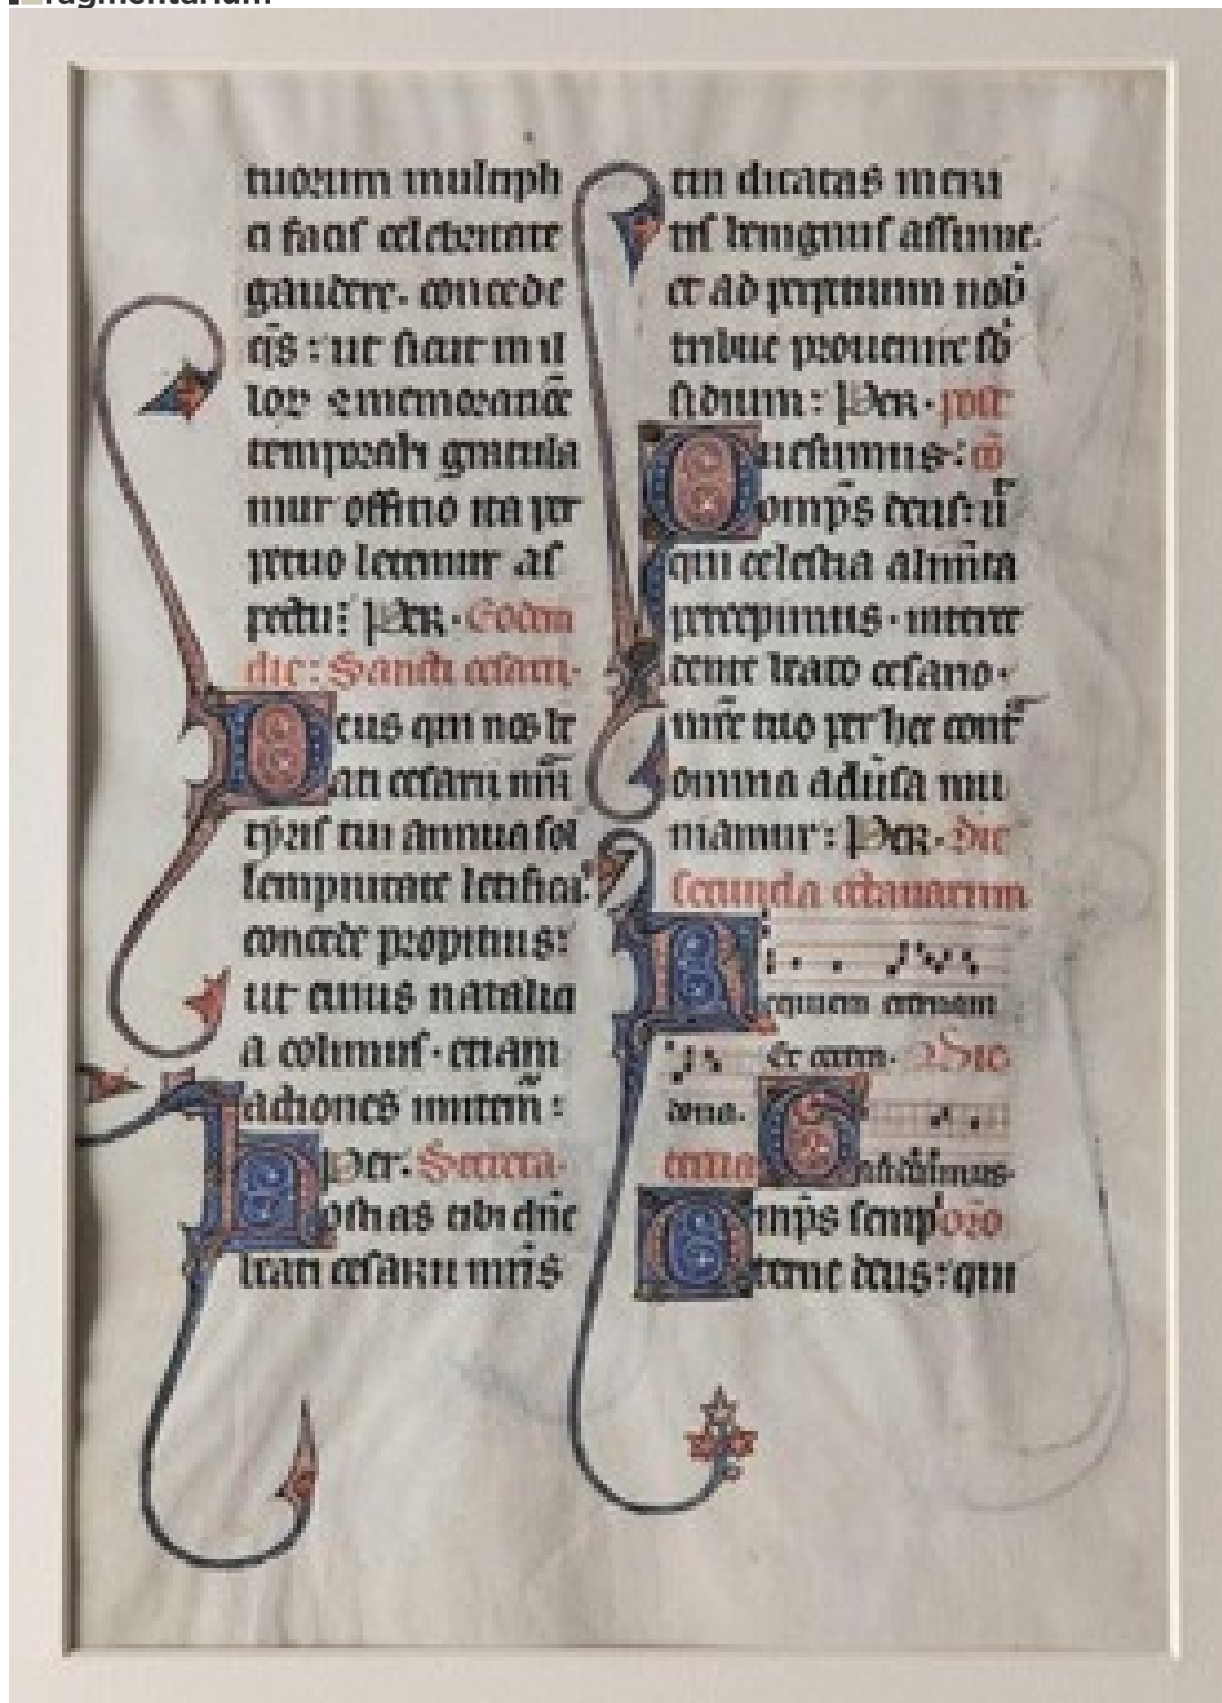 fragmentarium
tuorum multipli
ci facis celebritate
gaudere. concede
q̄s : ut sicut in il
loꝝ cōmemoratōe
temporali gratula
mur officio ita per
petuo letemur as
pectu : PER. Eodem
die : Sancti cesarii.
Deus qui nos be
ati cesarii mr̄is
tyris tui annua sol
lempnitate letificas
concede propitius :
ut cuius natalici
a colimus. etiam
actiones imitem̄ :
Per. Secreta.
Hostias tibi dn̄e
beati cesarii mr̄is
tui dicatas meri
tis benignus assume.
et ad perpetuum nob̄
tribue prouenire sb̄
sidium : PER. post
Quesumus : cō
omp̄s deus : ut
qui celestia alim̄ta
percepimus. interce
dente beato cesario.
mr̄e tuo per hec cont̄
omnia aduersa mu
niamur : PER. Die
secunda octauarum
Requiem eternam
Et eterna. Dic
dona.
Gaudeamus.
Omp̄s semp̄ oro
eterne deus : qui